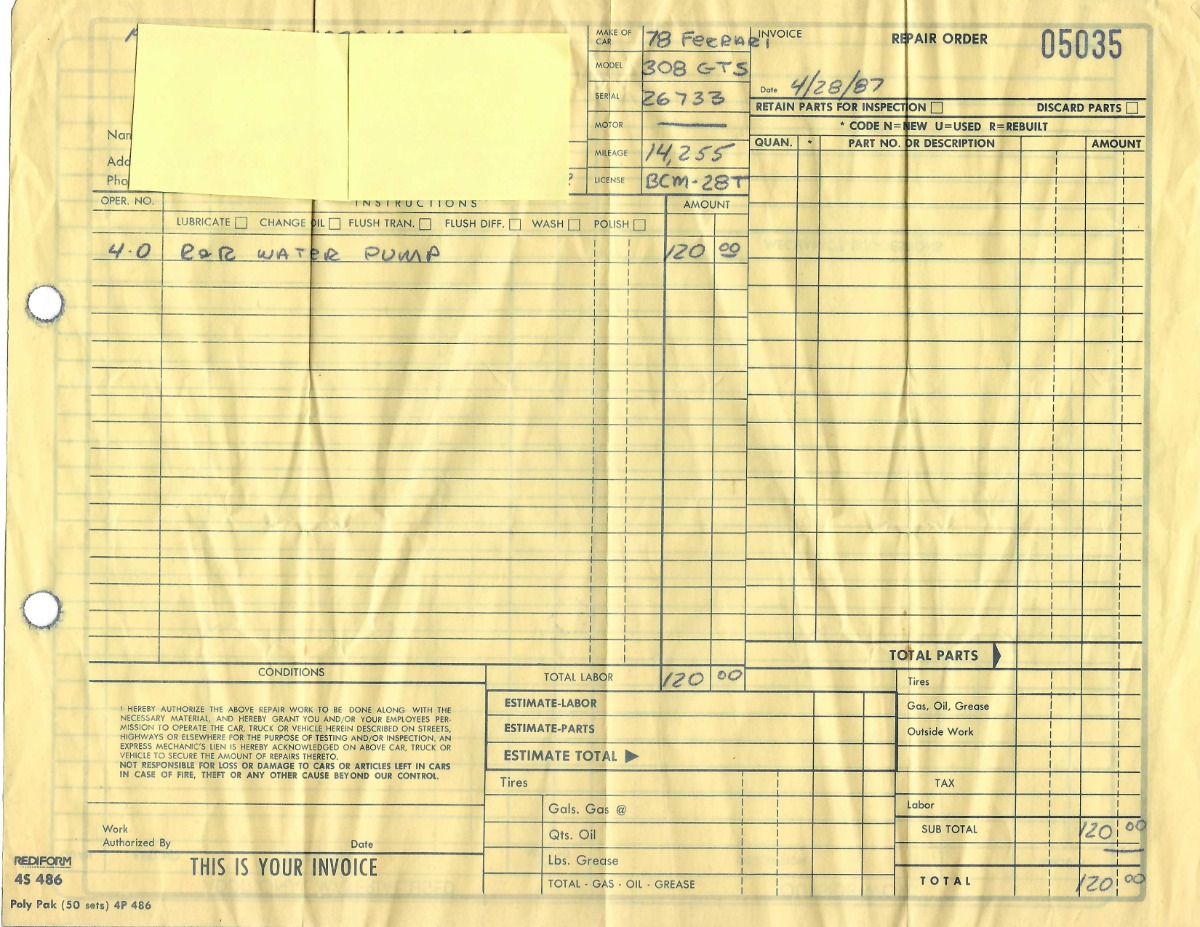 MAKE OF CAR 78 Ferrari
MODEL 308 GTS
SERIAL 26733
MOTOR —
MILEAGE 14,255
LICENSE BCM-28T
INVOICE REPAIR ORDER 05035
Date 4/28/87
RETAIN PARTS FOR INSPECTION DISCARD PARTS
* CODE N=NEW U=USED R=REBUILT
QUAN. * PART NO. OR DESCRIPTION AMOUNT
OPER. NO. INSTRUCTIONS AMOUNT
LUBRICATE CHANGE OIL FLUSH TRAN. FLUSH DIFF. WASH POLISH
4.0 R&R WATER PUMP 120 00
TOTAL PARTS
CONDITIONS
TOTAL LABOR 120 00
I HEREBY AUTHORIZE THE ABOVE REPAIR WORK TO BE DONE ALONG WITH THE
NECESSARY MATERIAL, AND HEREBY GRANT YOU AND/OR YOUR EMPLOYEES PER-
MISSION TO OPERATE THE CAR, TRUCK OR VEHICLE HEREIN DESCRIBED ON STREETS,
HIGHWAYS OR ELSEWHERE FOR THE PURPOSE OF TESTING AND/OR INSPECTION. AN
EXPRESS MECHANIC'S LIEN IS HEREBY ACKNOWLEDGED ON ABOVE CAR, TRUCK OR
VEHICLE TO SECURE THE AMOUNT OF REPAIRS THERETO.
NOT RESPONSIBLE FOR LOSS OR DAMAGE TO CARS OR ARTICLES LEFT IN CARS
IN CASE OF FIRE, THEFT OR ANY OTHER CAUSE BEYOND OUR CONTROL.
Work
Authorized By Date
THIS IS YOUR INVOICE
ESTIMATE-LABOR
ESTIMATE-PARTS
ESTIMATE TOTAL
Tires
Gals. Gas @
Qts. Oil
Lbs. Grease
TOTAL - GAS - OIL - GREASE
Tires
Gas, Oil, Grease
Outside Work
TAX
Labor
SUB TOTAL 120 00
TOTAL 120 00
REDIFORM
4S 486
Poly Pak (50 sets) 4P 486